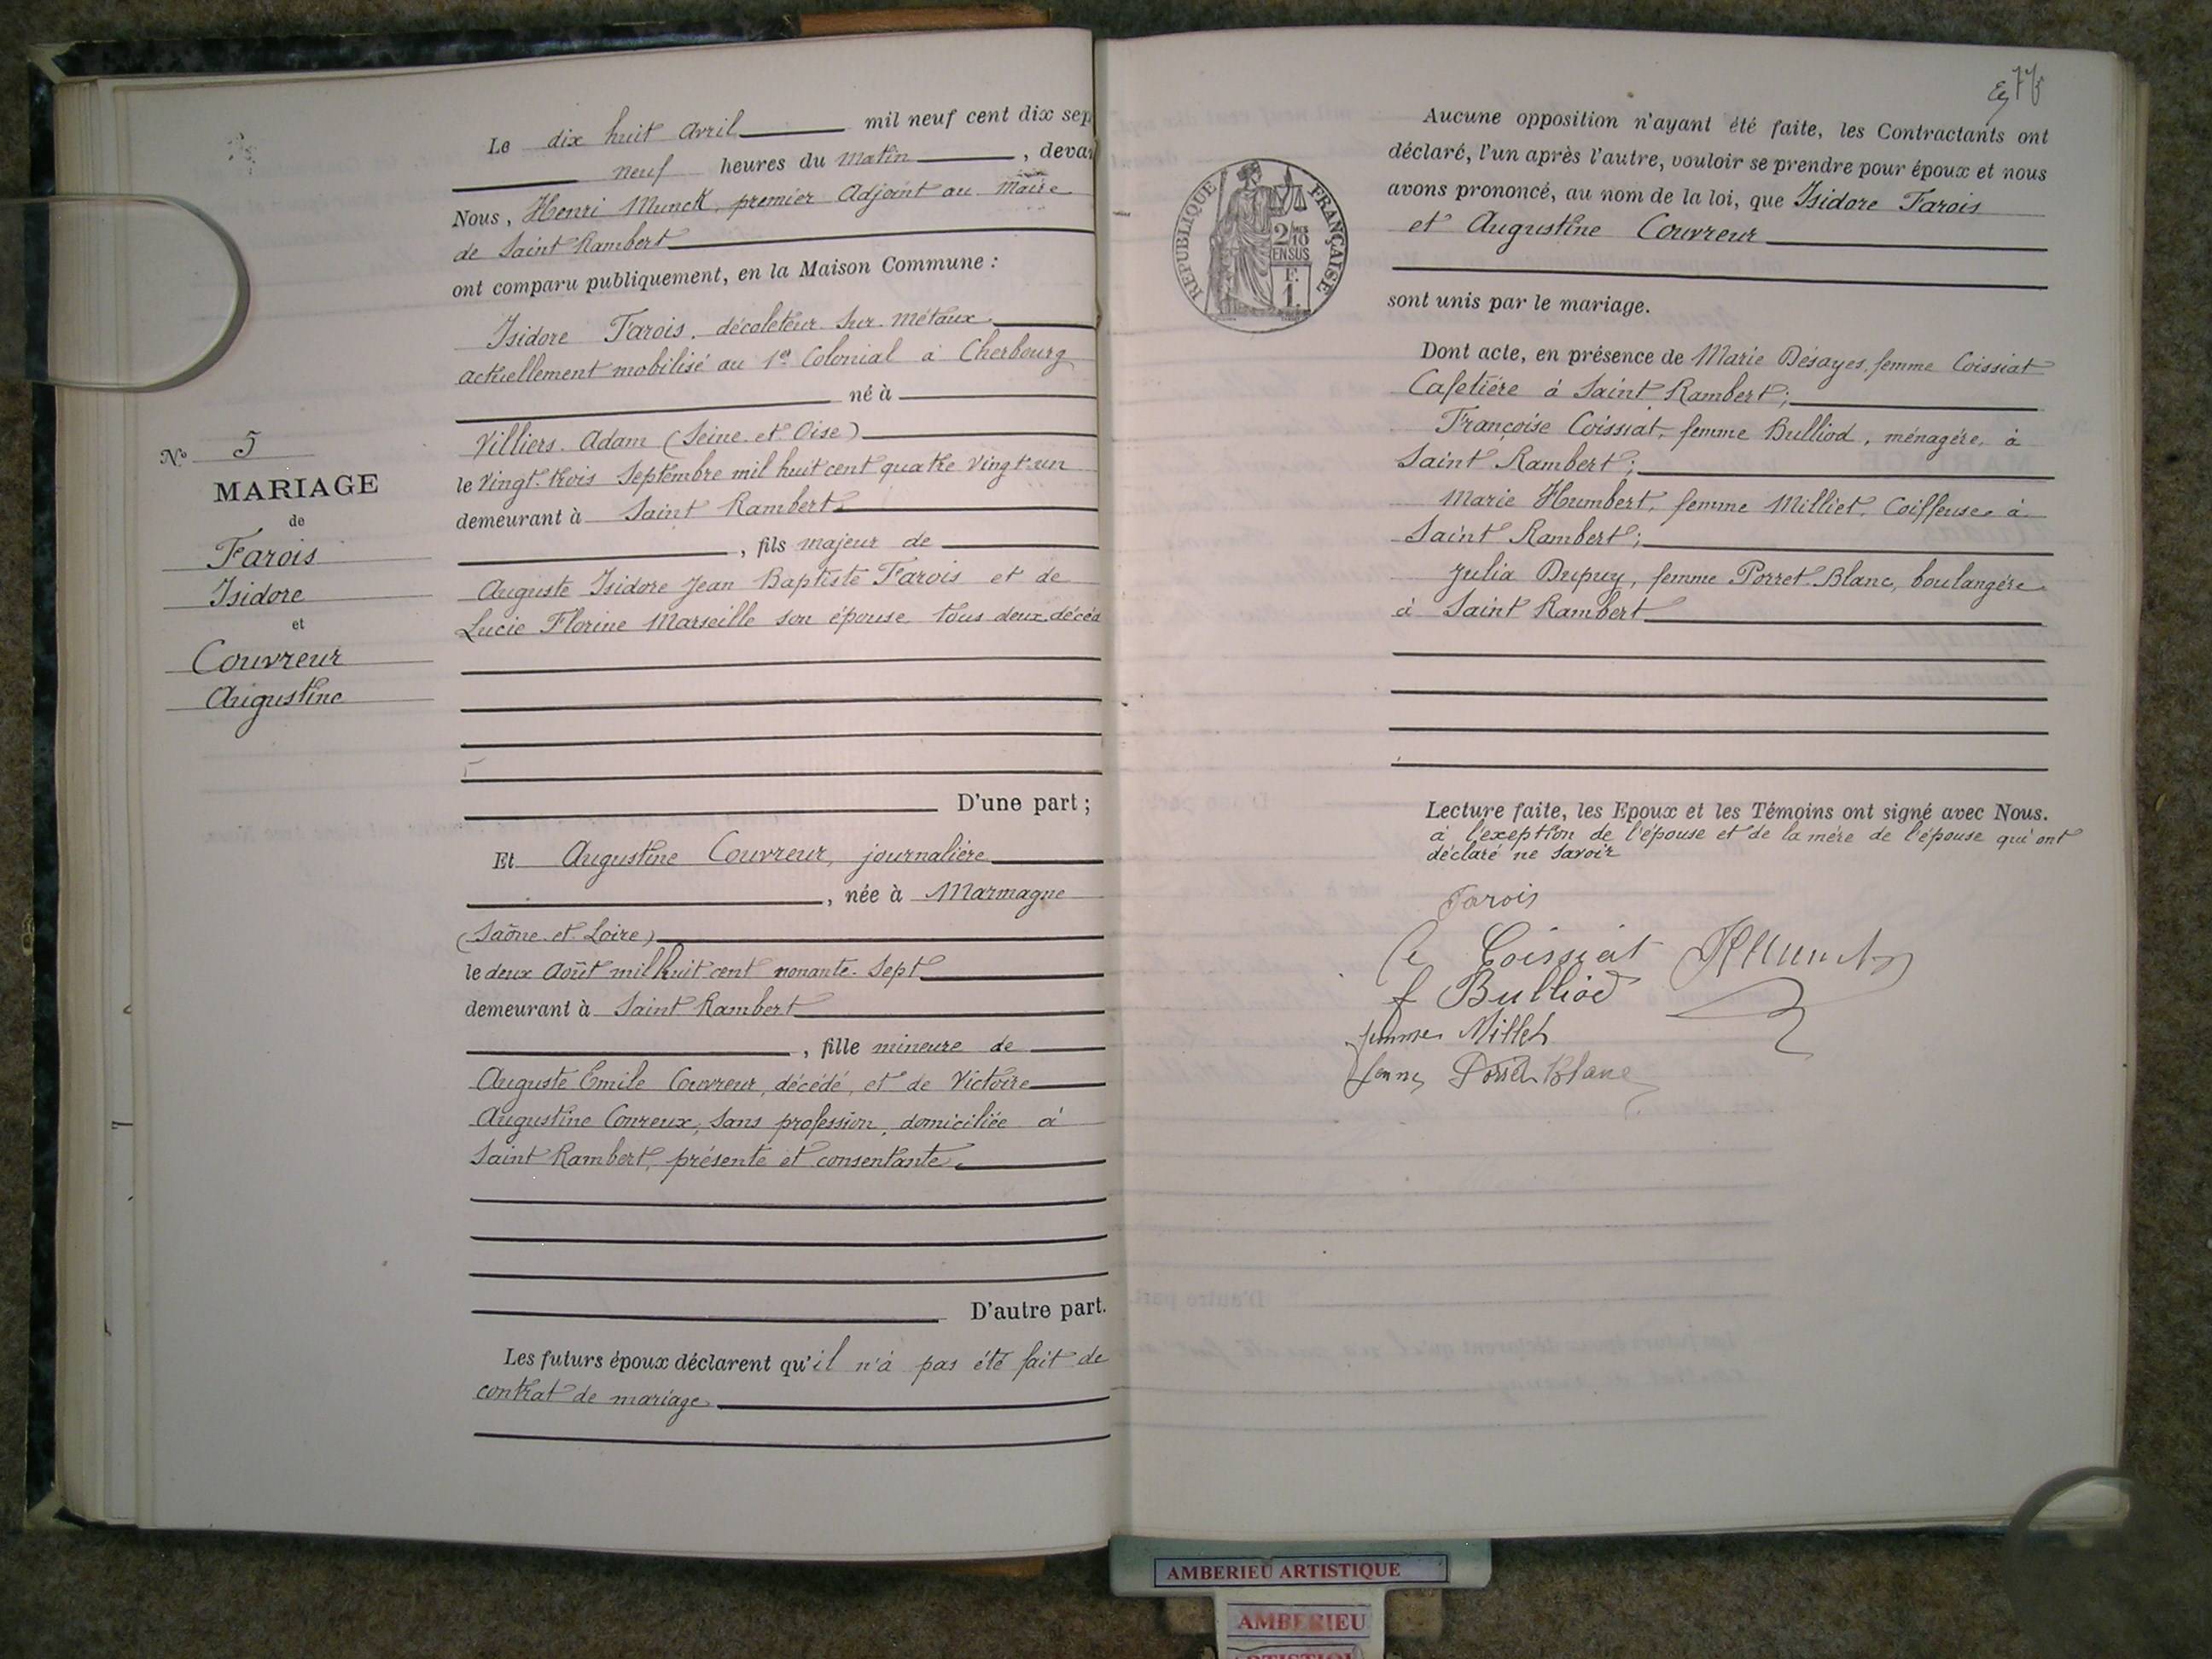 N° 5
MARIAGE
de
Farois
Isidore
et
Couvreur
Augustine
Le dix huit Avril mil neuf cent dix sep
neuf heures du Matin, deva
Nous, Henri Munck, premier Adjoint au Maire
de Saint Rambert
ont comparu publiquement, en la Maison Commune :
Isidore Farois, décoleteur sur métaux
actuellement mobilisé au 1er Colonial à Cherbourg
né à
Villiers Adam (Seine et Oise)
le vingt-trois Septembre mil huit cent quatre vingt un
demeurant à Saint Rambert
, fils majeur de
Auguste Isidore Jean Baptiste Farois et de
Lucie Florine Marseille son épouse tous deux décéd
D'une part ;
Et Augustine Couvreur, journalière
, née à Marmagne
(Saône et Loire)
le deux Août mil huit cent nonante-sept
demeurant à Saint Rambert
, fille mineure de
Auguste Emile Couvreur, décédé, et de Victoire
Augustine Conreux, sans profession, domiciliée à
Saint Rambert, présente et consentante.
D'autre part.
Les futurs époux déclarent qu'il n'à pas été fait de
contrat de mariage
REPUBLIQUE FRANÇAISE
2/10
EN SUS
F.
1.
Aucune opposition n'ayant été faite, les Contractants ont
déclaré, l'un après l'autre, vouloir se prendre pour époux et nous
avons prononcé, au nom de la loi, que Isidore Farois
et Augustine Couvreur
sont unis par le mariage.
Dont acte, en présence de Marie Désayes, femme Coissiat
Cafetière à Saint Rambert;
Françoise Coissiat, femme Bulliod, ménagère, à
Saint Rambert;
Marie Humbert, femme Milliet, Coiffeuse à
Saint Rambert;
Julia Dupuy, femme Porret-Blanc, boulangère
à Saint Rambert
Lecture faite, les Epoux et les Témoins ont signé avec Nous.
à l'exeption de l'épouse et de la mère de l'épouse qui ont
déclaré ne savoir
Farois
Coissiat HMunck
f Bulliod
femme Millet
femme Porret Blanc
AMBERIEU ARTISTIQUE
AMBERIEU